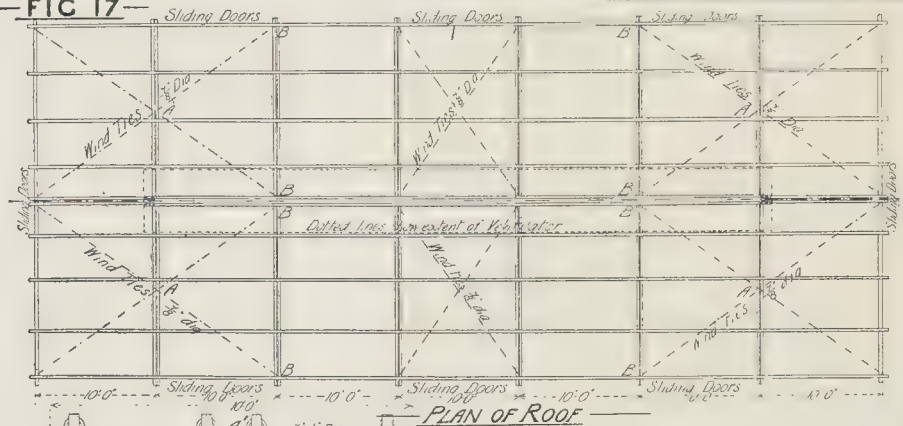 — FIG 17 —
Sliding Doors
Sliding Doors
Sliding Doors
B
B
Wind Ties 7/8" Dia
A
Wind Ties 7/8" Dia
Wind Ties 7/8" Dia
A
B
B
Sliding Doors
Sliding Doors
B
B
Dotted lines show extent of Ventilator
Wind Ties 7/8" dia
A
Wind ties 7/8" dia
Wind Ties 7/8" dia
A
B
B
Sliding Doors
Sliding Doors
Sliding Doors
10'-0"
10'-0"
10'-0"
10'-0"
10'-0"
10'-0"
10'-0"
— PLAN OF ROOF —